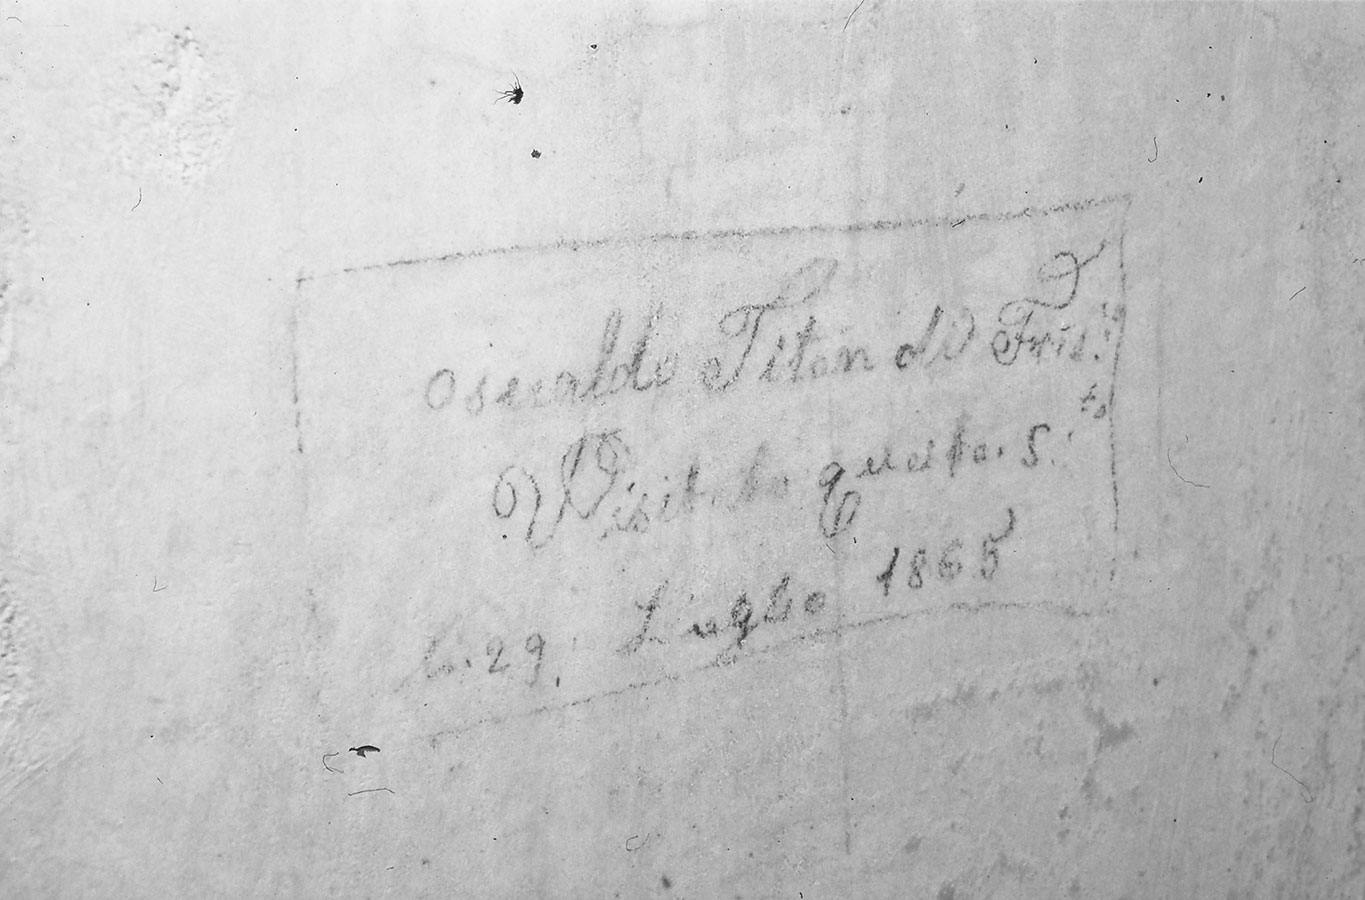 Osvaldo Titon di Fris.
Visitato questo. S.to
li. 29. Luglio 1865